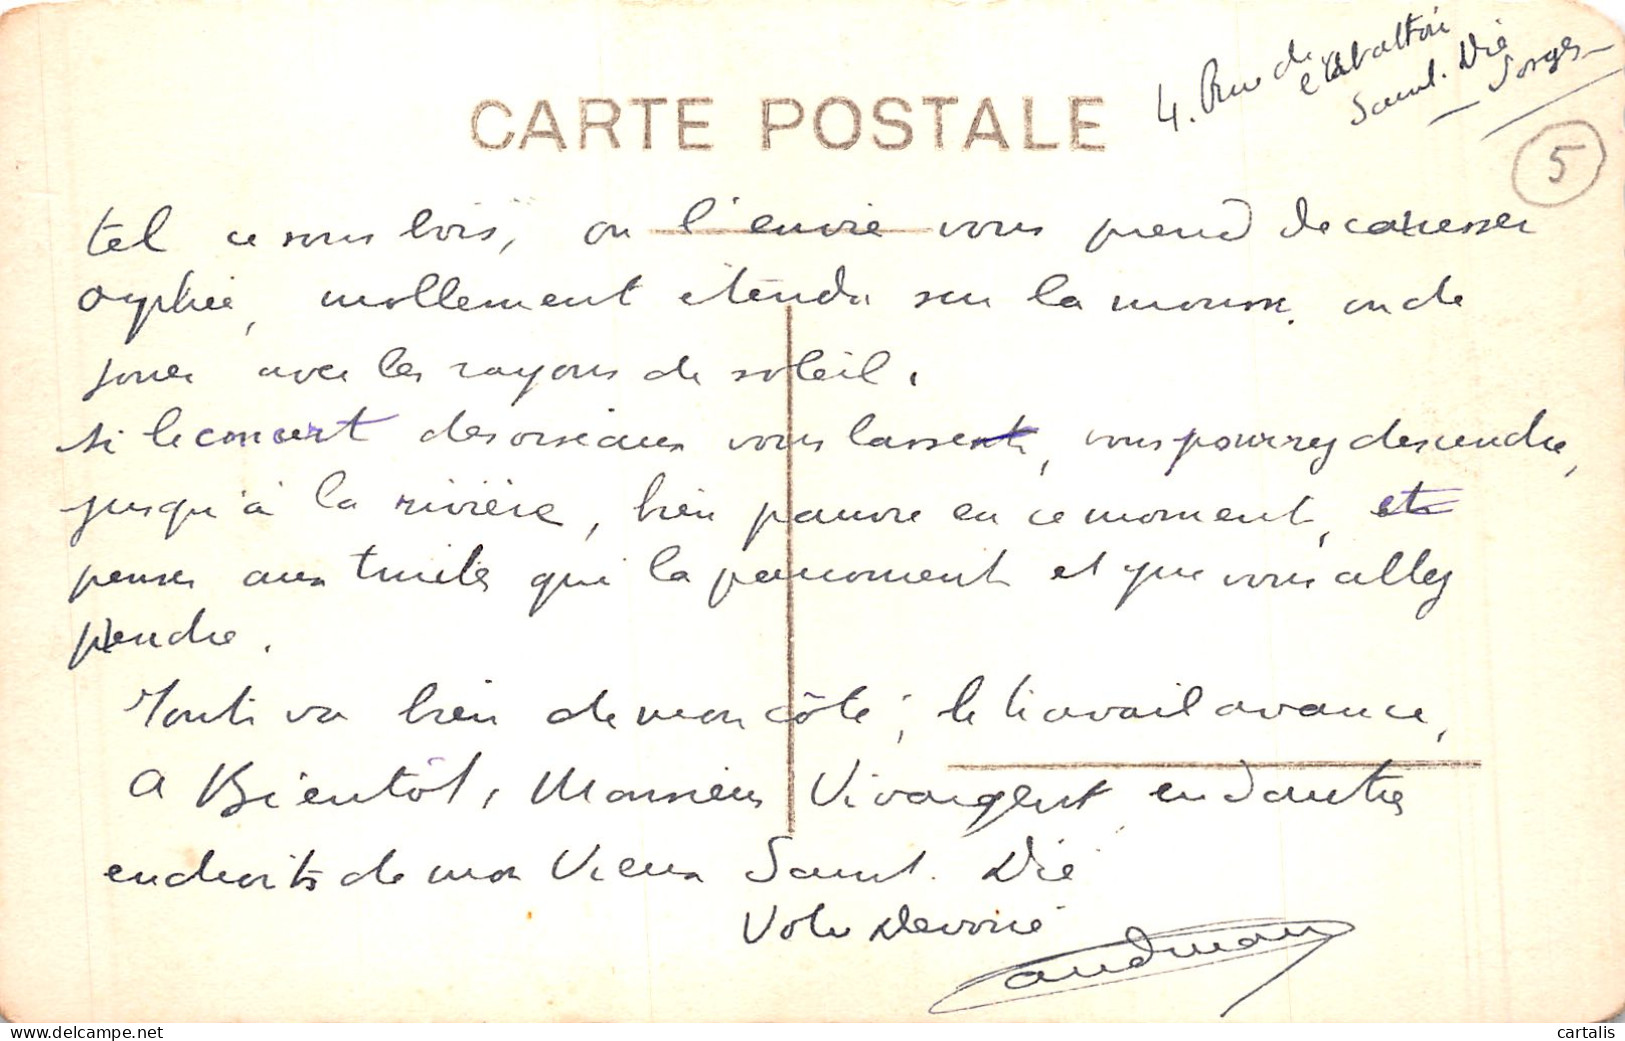 4. Rue de
Saint. Dié
Vosges
CARTE POSTALE
5
tel ce sous bois, ou l'envie vous prend de caresser
Orphée, mollement étendu sur la mousse. ou de
jouer avec les rayons de soleil.
Si le concert des oiseaux vous lasse, vous pourrez descendre,
jusqu'à la rivière, bien pauvre en ce moment,
penser aux truites qui la et que vous allez
prendre.
Tout va bien de mon côté ; le travail avance,
A Bientôt, Monsieur en d'autres
endroits de mon Vieux Saint. Dié
Votre Dévoué
cartalis
www.delcampe.net